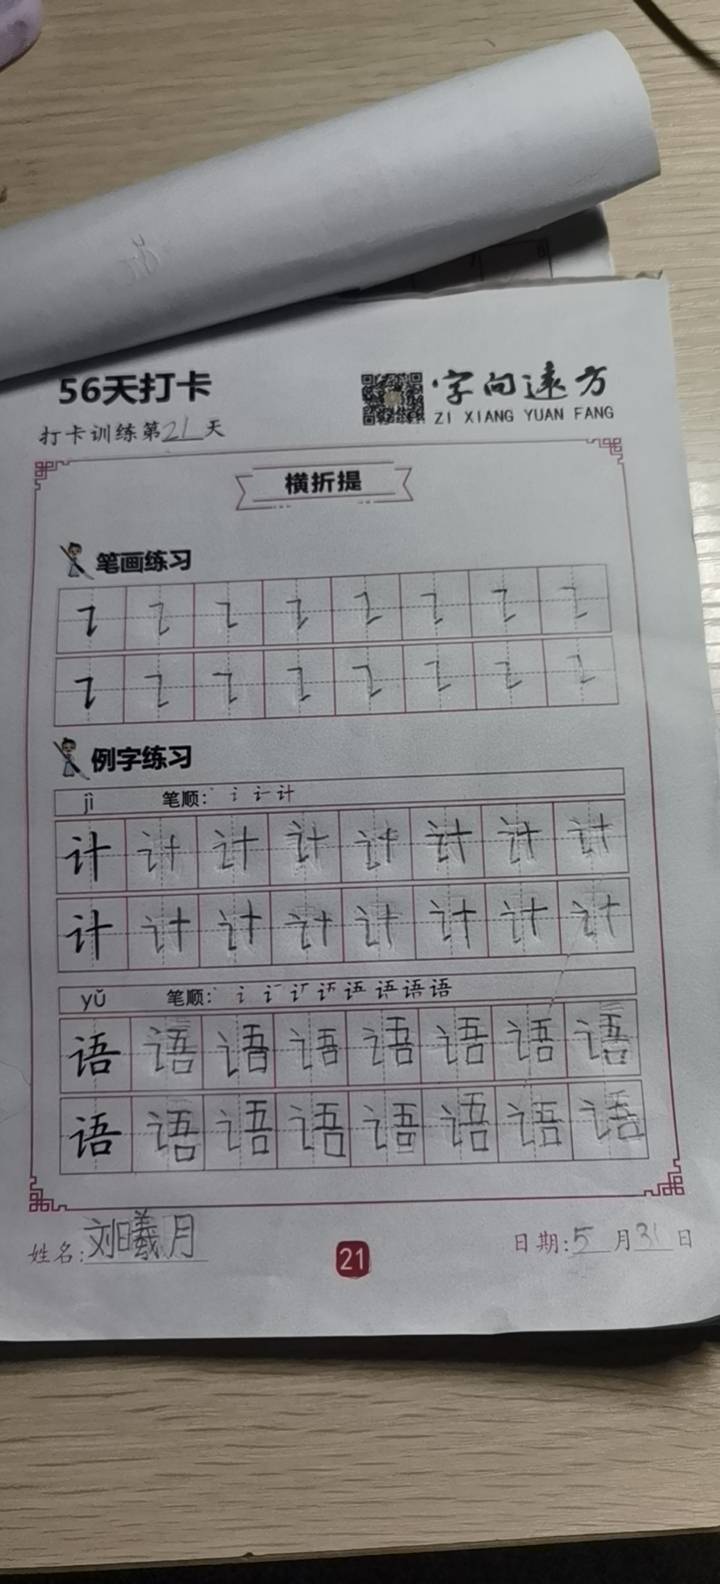 56天打卡
字向远方
ZI XIANG YUAN FANG
打卡训练第21天
横折提
笔画练习
例字练习
jì 笔顺: 计
计 计 计 计 计 计 计 计
计 计 计 计 计 计 计 计
yǔ 笔顺: 语 语
语 语 语 语 语 语 语 语
语 语 语 语 语 语 语 语
姓名: 刘曦月
21
日期: 5月31日